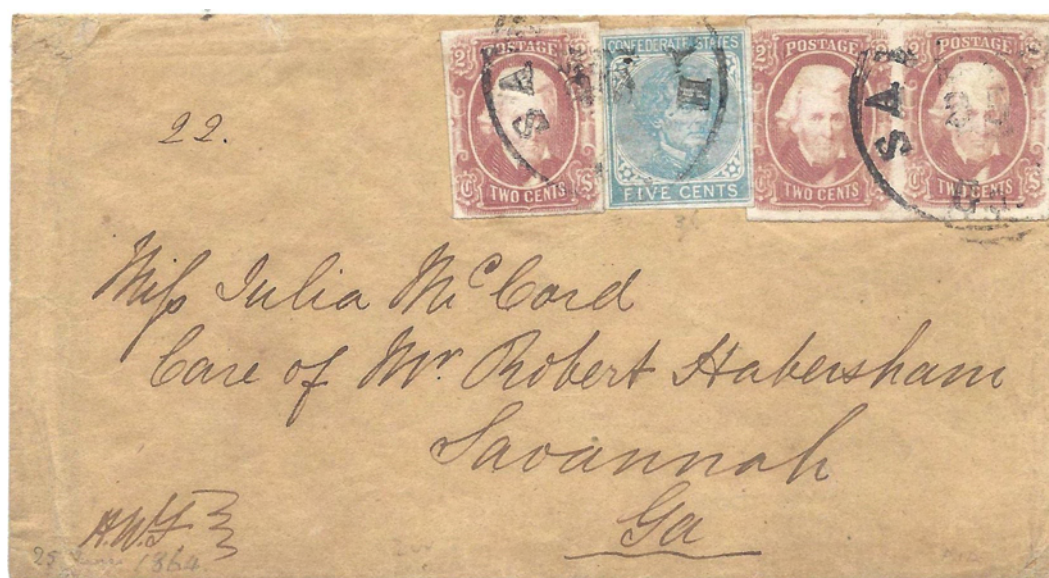 2 POSTAGE 2
C TWO CENTS S
CONFEDERATE STATES
FIVE CENTS
2 POSTAGE 2
C TWO CENTS S
2 POSTAGE 2
C TWO CENTS S
SA
H
SA
Ga.
22.
Miss Julia McCord
Care of Mr. Robert Habersham
Savannah
Ga
H.W.F.
25 June 1864